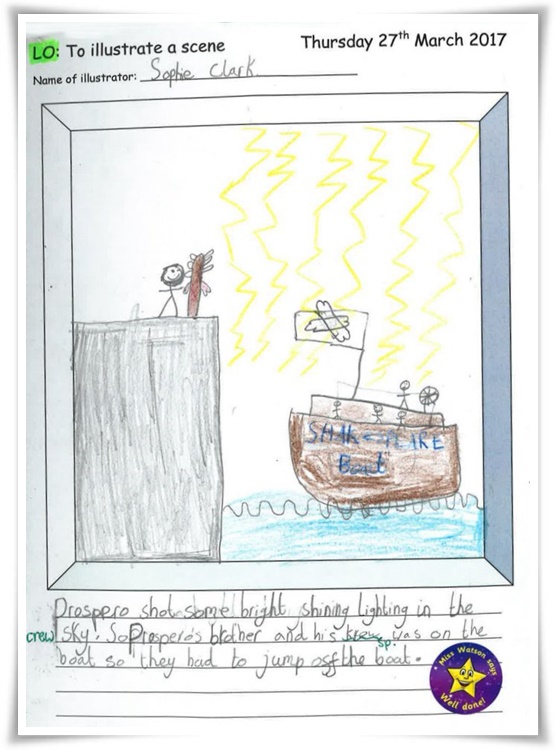 LO: To illustrate a scene
Thursday 27th March 2017
Name of illustrator: Sophie Clark
SHAKESPEARE
Boat
Prospero shot some bright shining lighting in the
crew sky. So Prospero's brother and his was on the
sp.
boat so they had to jump off the boat.
Miss Watson says
Well done!